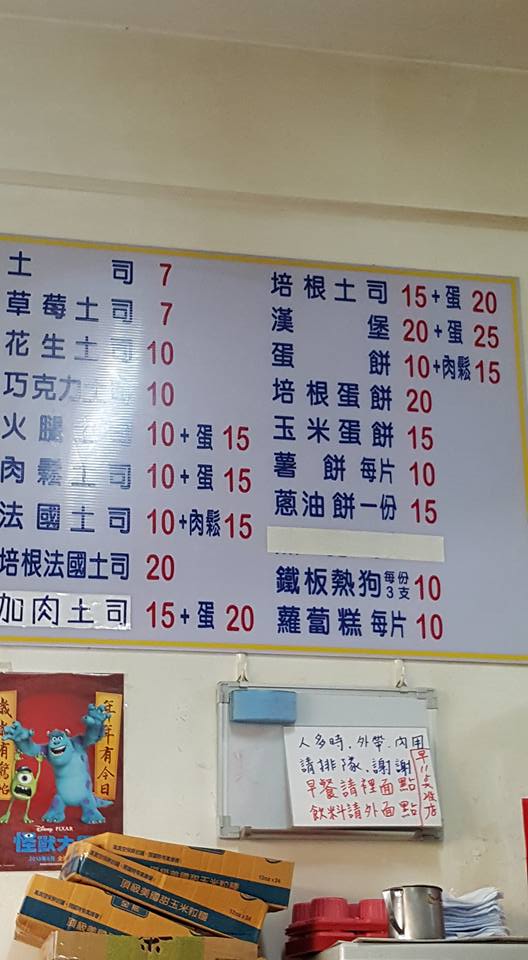 土司 7
草莓土司 7
花生土司 10
巧克力土司 10
火腿土司 10+蛋 15
肉鬆土司 10+蛋 15
法國土司 10+肉鬆 15
培根法國土司 20
加肉土司 15+蛋 20
培根土司 15+蛋 20
漢堡 20+蛋 25
蛋餅 10+肉鬆 15
培根蛋餅 20
玉米蛋餅 15
薯餅 每片 10
蔥油餅一份 15
鐵板熱狗 每份3支 10
蘿蔔糕 每片 10
人多時.外帶.內用
請排隊.謝謝
早餐請裡面點
飲料請外面點
年年有今日
歲歲有驚怕
Disney PIXAR
怪獸大
頂級美國甜玉米粒罐
12oz×24
頂級美國甜玉米粒罐
12oz×24